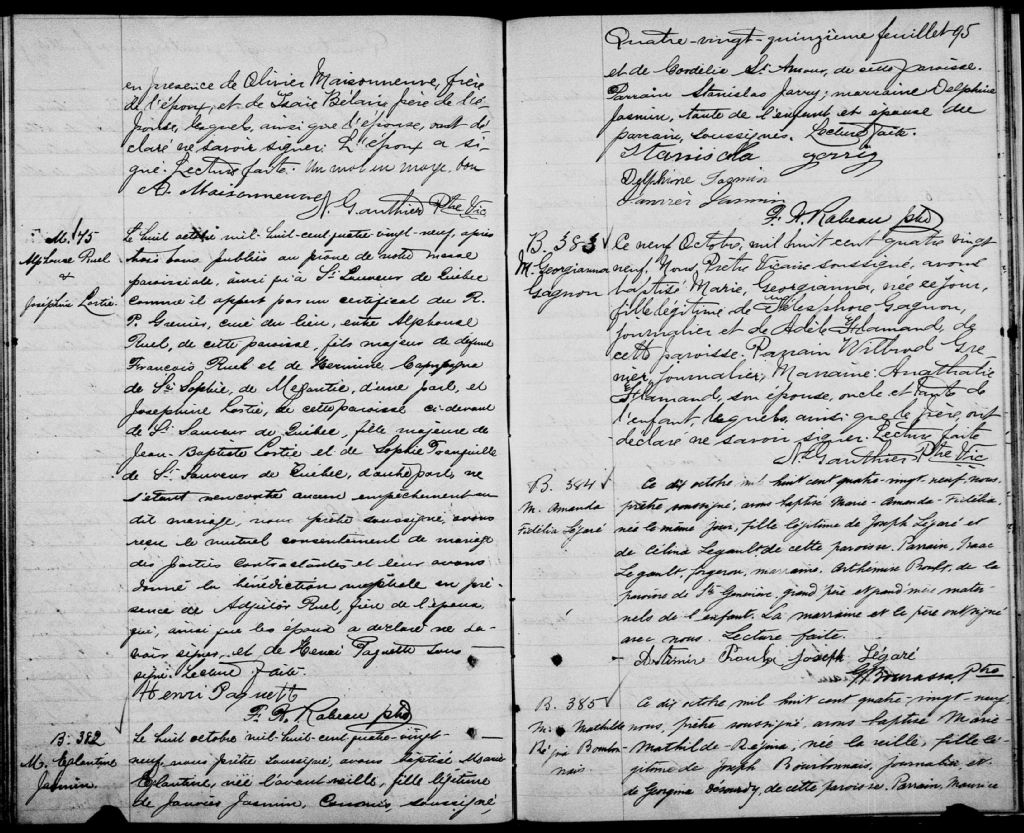 en présence de Olivier Maisonneuve, frère
de l'époux, et de Isaïe Bélair frère de l'é-
pouse, lesquels, ainsi que l'épouse, ont dé-
claré ne savoir signer. L'époux a si-
gné. Lecture faite. Un mot en marge, bon
A. Maisonneuve
N. Gauthier Ptre Vic
M. 145
Alphonse Ruel
&
Joséphine Lortie
Le huit octobre mil-huit-cent-quatre-vingt-neuf, après
trois bans publiés au prône de notre messe
paroissiale, ainsi qu'à St Sauveur de Québec
comme il appert par un certificat du R.
P. Grenier, curé du lieu, entre Alphonse
Ruel, de cette paroisse, fils majeur de défunt
François Ruel et de Hermine
de Ste Sophie, de Mégantic, d'une part, et
Joséphine Lortie, de cette paroisse ci-devant
de St Sauveur de Québec, fille majeure de
Jean-Baptiste Lortie et de Sophie Tranquille
de St Sauveur de Québec, d'autre part, ne
s'étant rencontré aucun empêchement au
dit mariage, nous prêtre soussigné, avons
reçu le mutuel consentement de mariage
des parties contractantes et leur avons
donné la bénédiction nuptiale en pré-
sence de Ruel, frère de l'époux
qui, ainsi que les époux a déclaré ne sa-
voir signer, et de Henri Paquette sous-
signé. Lecture faite.
Henri Paquett
F. A. Rabeau ptre
B. 382
M. Eglantine
Jasmin.
Le huit octobre mil-huit-cent-quatre-vingt-
neuf, nous prêtre soussigné, avons baptisé Marie
Eglantine, née l'avant veille, fille légitime
de Janvier Jasmin, soussigné,
Quatre-vingt-quinzième feuillet 95
et de Cordélie St Amour, de cette paroisse.
Parrain Stanislas Jarry; marraine Delphine
Jasmin, tante de l'enfant et épouse du
parrain, soussignés. Lecture faite.
Stanisla gerry
Delphine Jazmin
Janvier Jasmin
F. A. Rabeau ptre
B. 383
M. Georgianna
Gagnon
Le neuf Octobre, mil huit cent quatre vingt
neuf, Nous Prêtre Vicaire soussigné, avons
baptisé Marie, Georgianna, née ce jour,
fille légitime de Télesphore Gagnon,
journalier et de Adèle Flamand, de
cette paroisse. Parrain Wilbrod Gre-
nier, Journalier; Marraine Anathalie
Flamand, son épouse, oncle et tante de
l'enfant, lesquels, ainsi que le père, ont
déclaré ne savoir signer. Lecture faite
N. Gauthier Ptre Vic
B. 384
M. Amanda
Fidélia Légaré
Ce dix octobre mil huit cent quatre-vingt-neuf, nous,
prêtre soussigné, avons baptisé Marie-Amanda-Fidélia,
née le même jour, fille légitime de Joseph Légaré et
de Célina Legault de cette paroisse. Parrain, Isaac
Legault, forgeron, marraine, Arthémise Proulx, de la
paroisse de Ste Geneviève, grand père et grand'mère mater-
nels de l'enfant. La marraine et le père ont signé
avec nous. Lecture faite.
Artemis Proulx Joseph Légaré
Bourassa Ptre
B. 385
M. Mathilde
Réjina Bourbon-
nais.
Ce dix octobre mil huit cent quatre-vingt neuf
nous, prêtre soussigné, avons baptisé Marie-
Mathilde-Réjina, née la veille, fille lé-
gitime de Joseph Bourbonnais, journalier et
de Georgina de cette paroisse. Parrain, Maurice